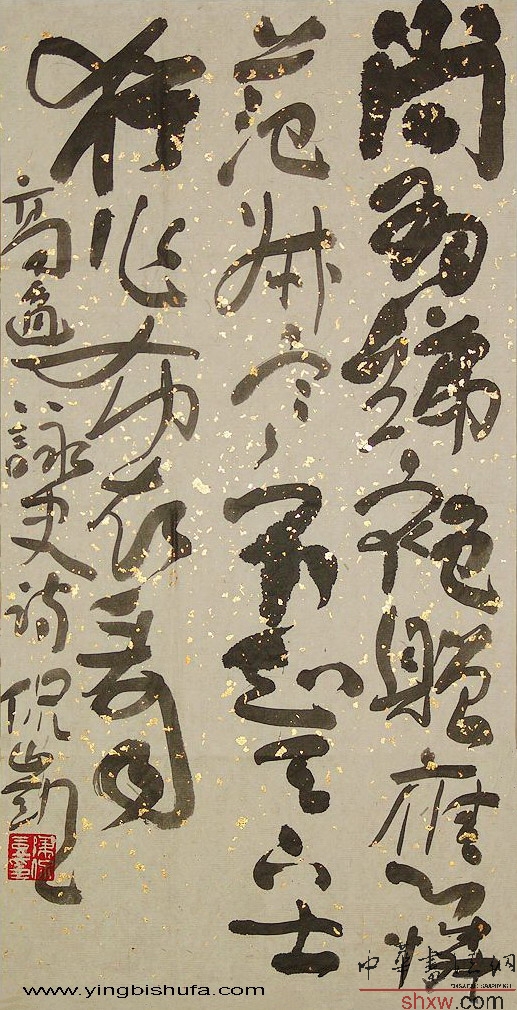 尚有綈袍贈應憐
范叔寒不知天下士
猶作布衣看
高適詠史詩
中華書法网
shxw.com
www.yingbishufa.com